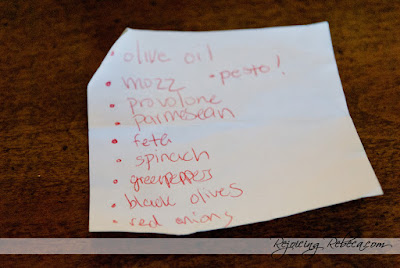 • olive oil
• mozz • pesto!
• provolone
• parmesean
• feta
• spinach
• greenpeppers
• black olives
• red onions
Rejoicing Rebeca.com